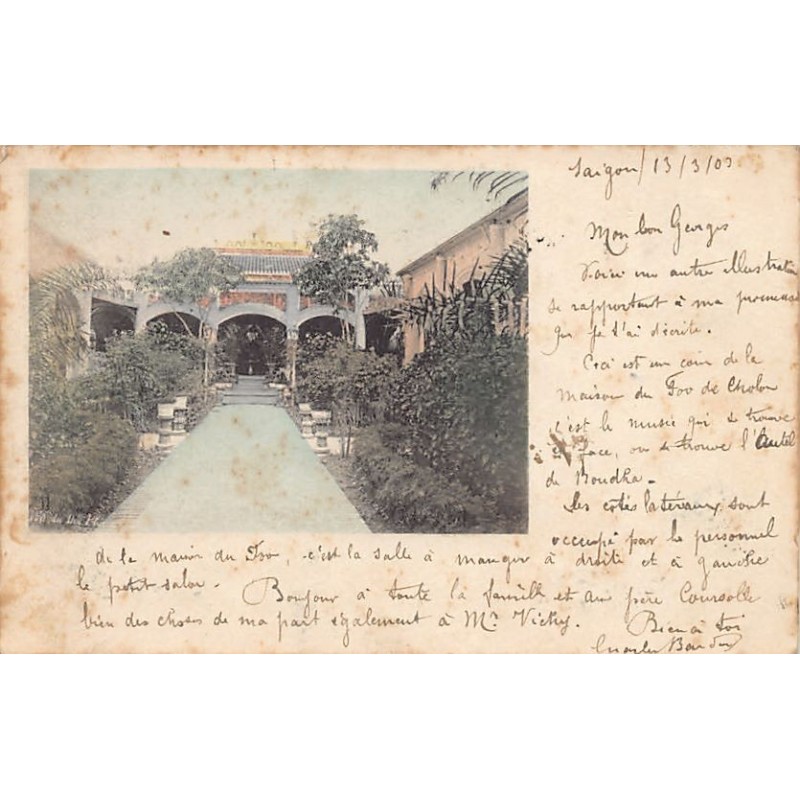 Saigon / 13/3/03
Mon bon Georges
Voici une autre illustration
se rapportant à ma promenade
que je t'ai décrite.
Ceci est un coin de la
maison du Foo de Cholon
c'est le musée qui se trouve
en face, ou se trouve l'Autel
de Boudha -
Les côtés latéraux sont
occupé par le personnel
de la maison du Foo, c'est la salle à manger à droite et à gauche
le petit salon - Bonjour à toute la famille et au père Coursolle
bien des choses de ma part également à Mr Vichy.
Bien à toi
Charles